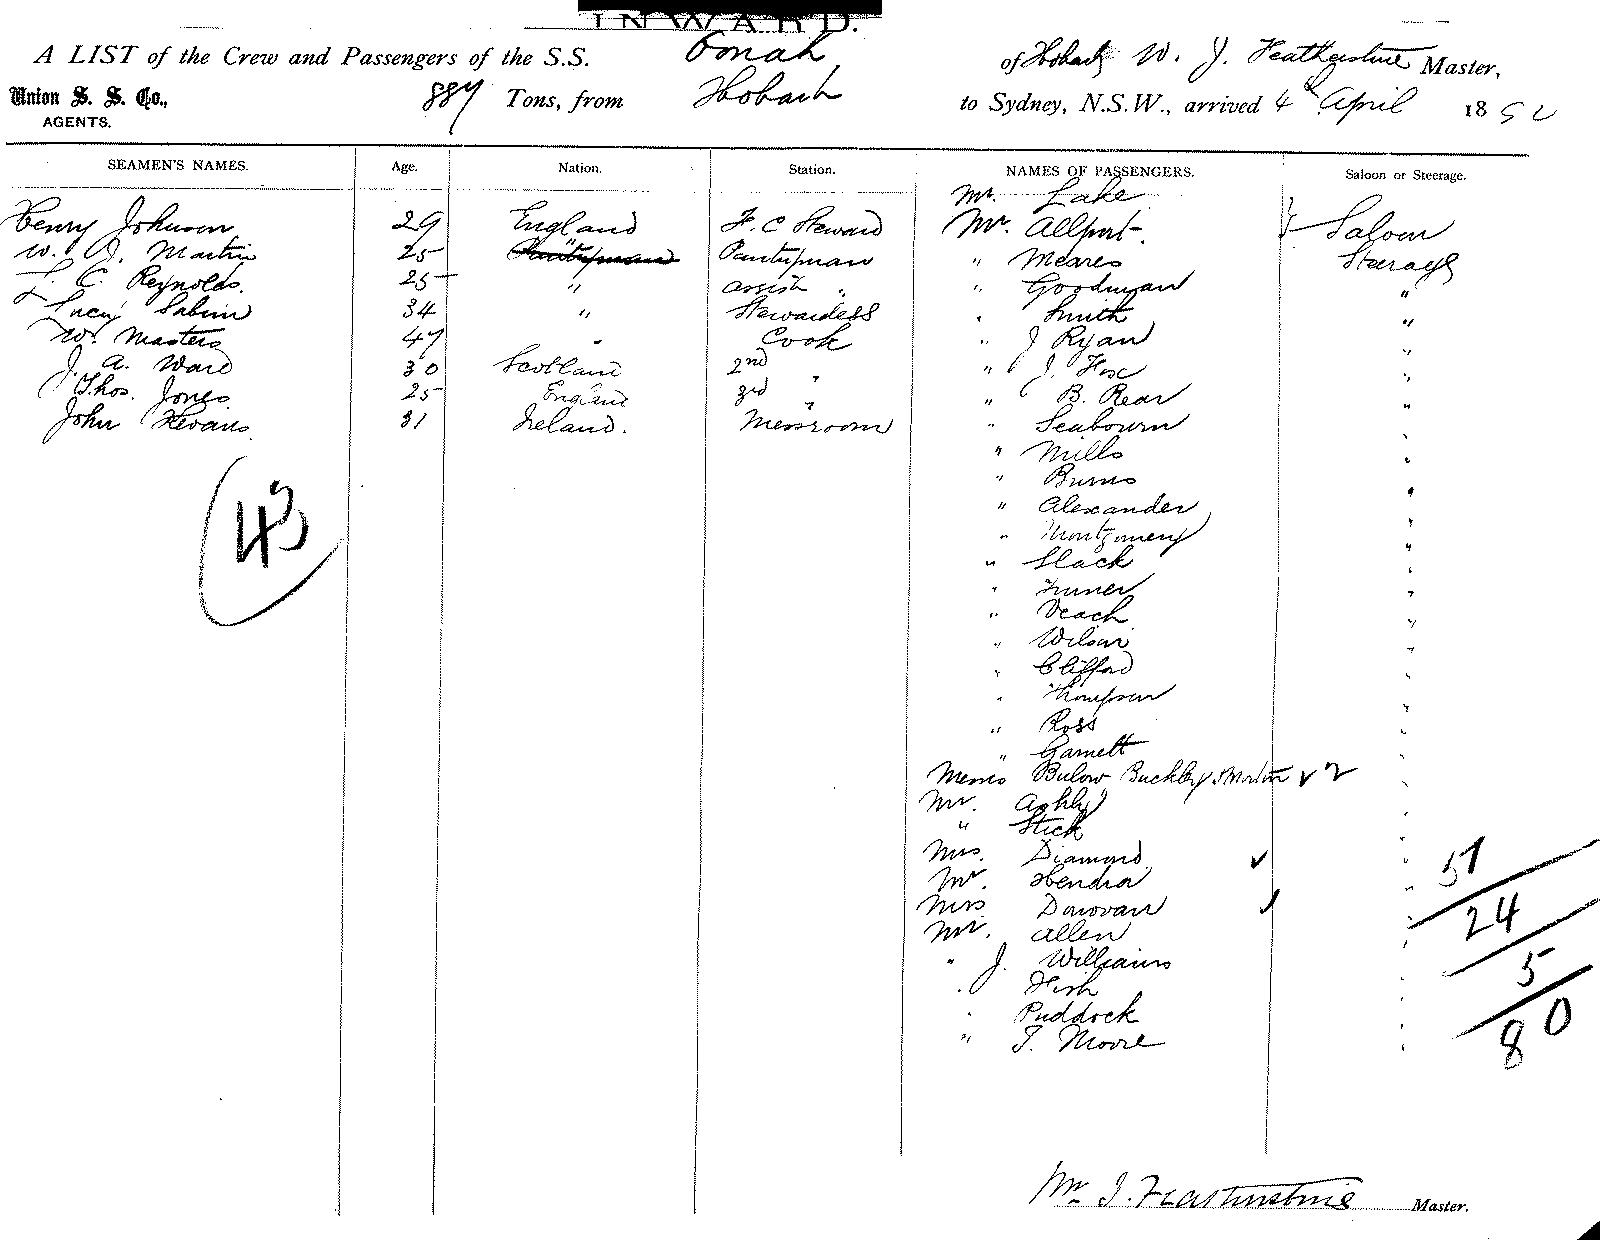 INWARD.
A LIST of the Crew and Passengers of the S.S. Oonah of Hobart W. J. Featherstone Master,
Union S. S. Co., AGENTS. 887 Tons, from Hobart to Sydney, N.S.W., arrived 4th April 1892
SEAMEN'S NAMES. Age. Nation. Station. NAMES OF PASSENGERS. Saloon or Steerage.
Mr. Lake
Henry Johnson 29 England F. C Steward Mr. Allport Saloon
W. J. Martin 25 " Pantryman " Meares Steerage
C. Reynolds. 25 " assist " " Goodman "
Lucy Sabini 34 " Stewardess " Smith "
W. Masters 47 " Cook " J Ryan "
J. A. Ward 30 Scotland 2nd " " J. Fox "
Thos. Jones 25 England 3rd " " B. Rear "
John Hevans 31 Ireland. Messroom " Seabourn "
" Mills "
" Burns "
" Alexander "
" Montgomery "
" Slack "
" Turner "
" Veach "
" Wilson "
" Clifford "
" Thompson "
" Ross "
" Garnett "
Messrs Bulow Buckley & Morton "
Mr. Ashly "
" Stick "
Mrs. Diamond "
Mr. Hendra "
Mrs Donovan "
Mr. Allen "
" J. Williams "
" Fish "
" Puddock "
" T. Moore "
43
51
24
5
80
Wm J. Featherstone Master.